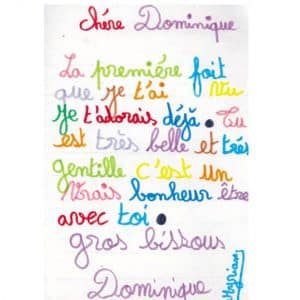 Chére Dominique
La premiére foit
que je t'ai vu
Je t'adorais déjà. Tu
est très belle et trés
gentille c'est un
Vrais bonheur être
avec toi.
gros bissous
Dominique
Myriam